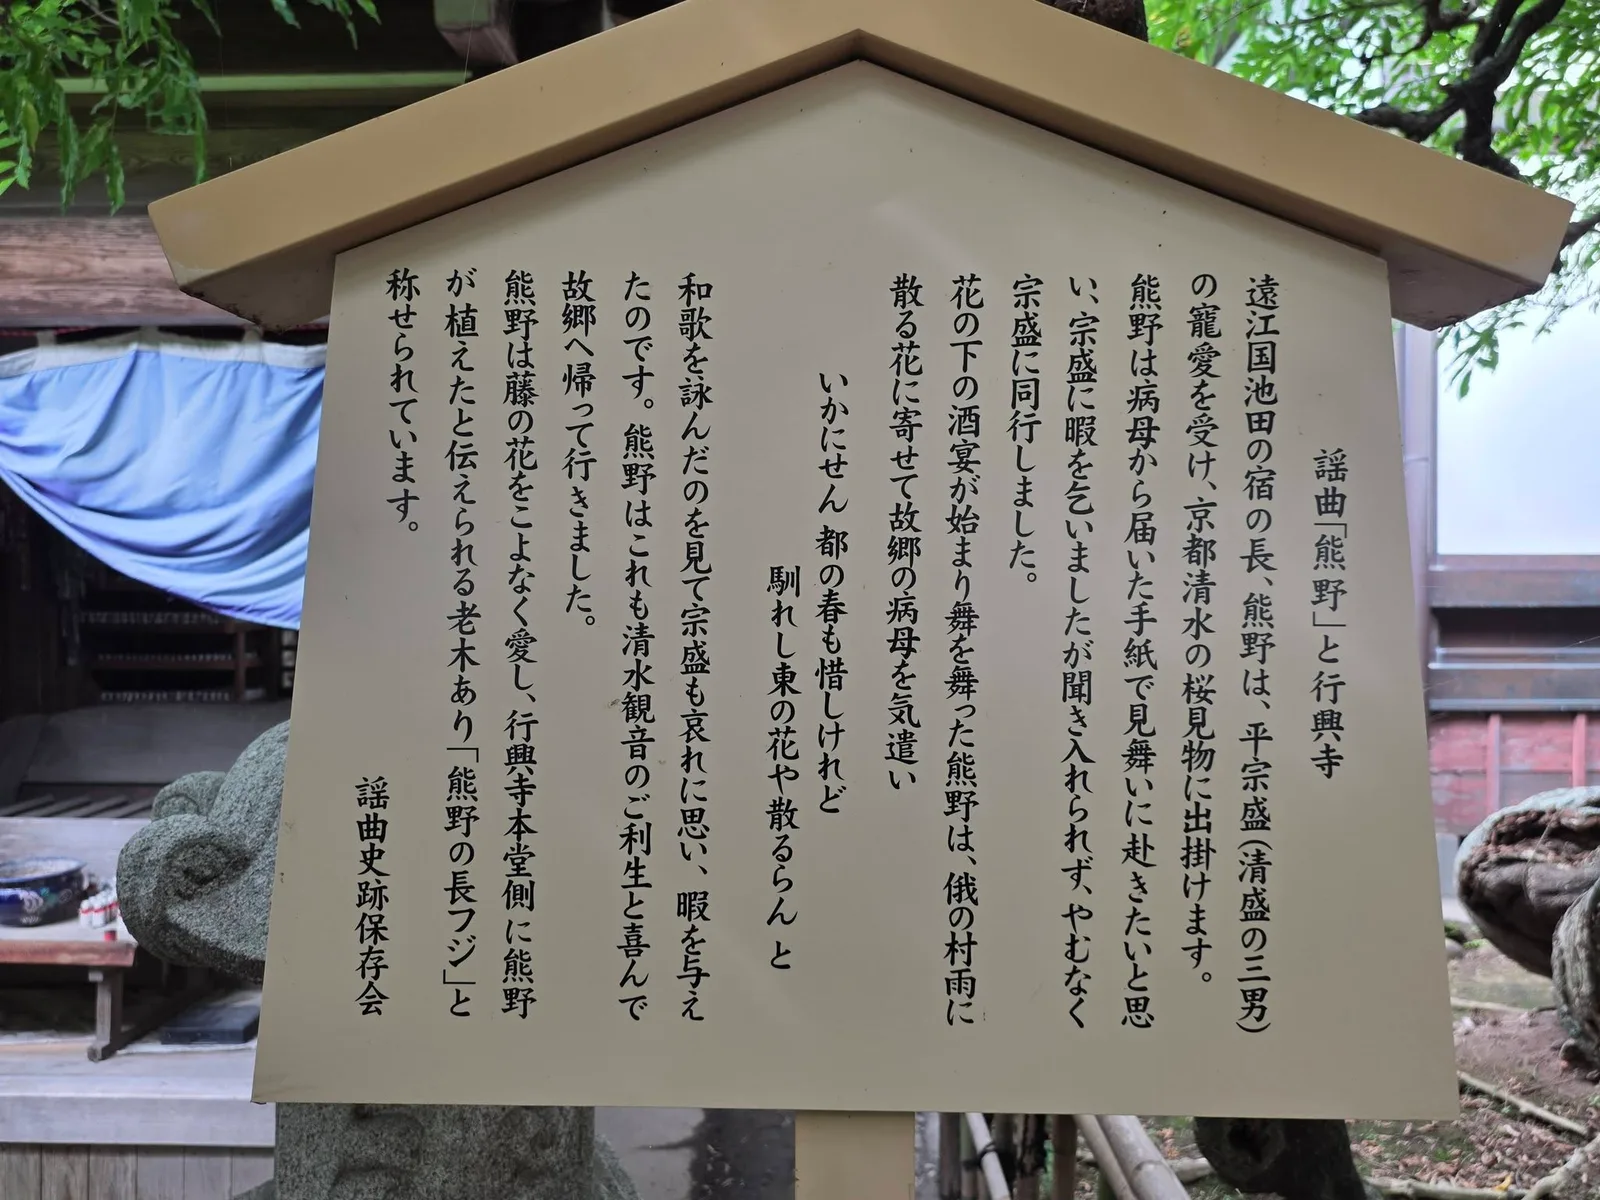 謡曲「熊野」と行興寺
遠江国池田の宿の長、熊野は、平宗盛(清盛の三男)
の寵愛を受け、京都清水の桜見物に出掛けます。
熊野は病母から届いた手紙で見舞いに赴きたいと思
い、宗盛に暇を乞いましたが聞き入れられず、やむなく
宗盛に同行しました。
花の下の酒宴が始まり舞を舞った熊野は、俄の村雨に
散る花に寄せて故郷の病母を気遣い
いかにせん 都の春も惜しけれど
馴れし東の花や散るらん と
和歌を詠んだのを見て宗盛も哀れに思い、暇を与え
たのです。熊野はこれも清水観音のご利生と喜んで
故郷へ帰って行きました。
熊野は藤の花をこよなく愛し、行興寺本堂側に熊野
が植えたと伝えられる老木あり「熊野の長フジ」と
称せられています。
謡曲史跡保存会